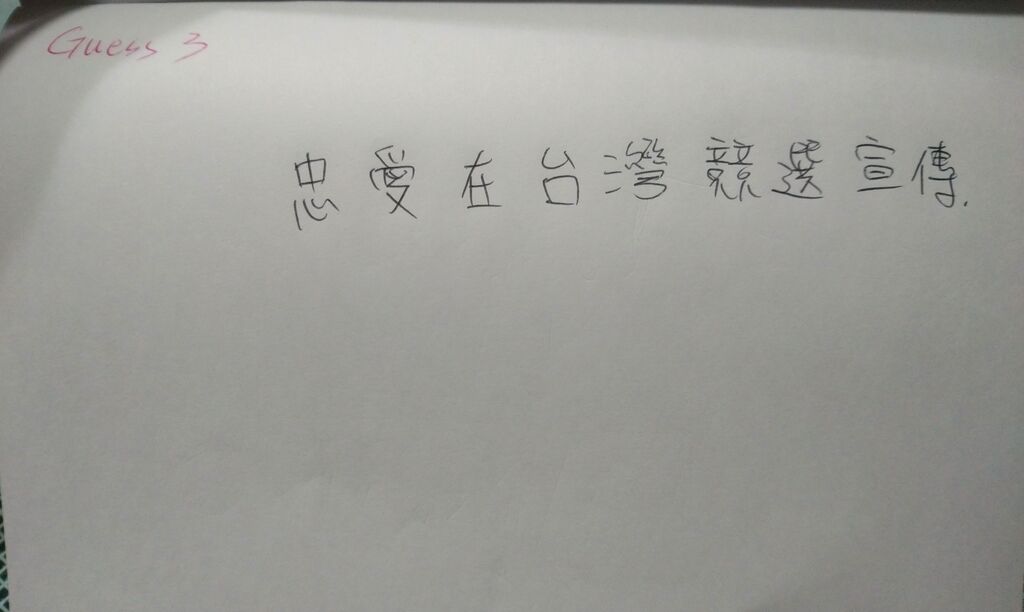 Guess 3
忠愛在台灣競選宣傳.